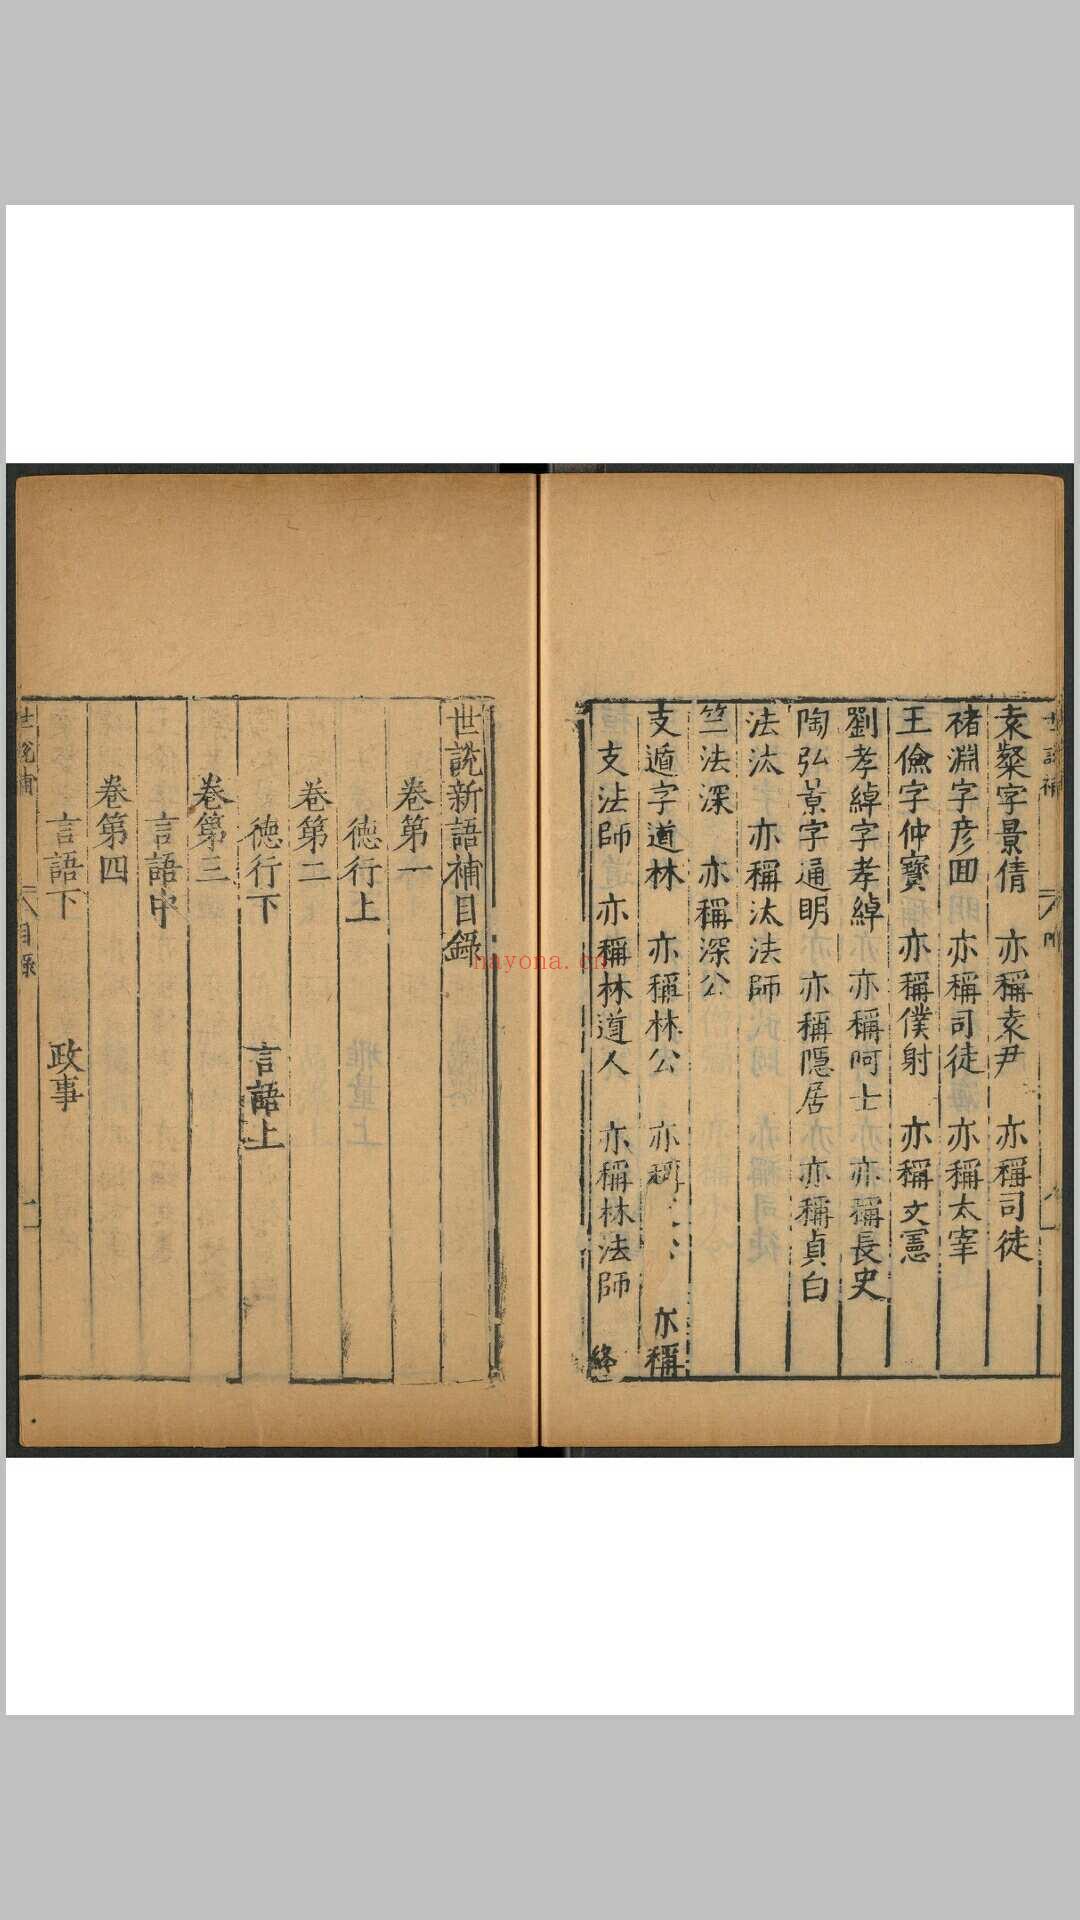 袁粲字景倩　亦稱袁尹　亦稱司徒
褚淵字彥回　亦稱司徒　亦稱太宰
王儉字仲寳　亦稱僕射　亦稱文憲
劉孝綽字孝綽　亦稱阿士　亦稱長史
陶弘景字通明　亦稱隠居　亦稱貞白
法汰　亦稱汰法師
竺法深　亦稱深公
支遁字道林　亦稱林公　亦稱　亦稱
支法師　亦稱林道人　亦稱林法師　終
世説新語補目錄
卷第一
徳行上
卷第二
徳行下　言語上
卷第三
言語中
卷第四
言語下　政事
世説補　目錄
nayona.cn